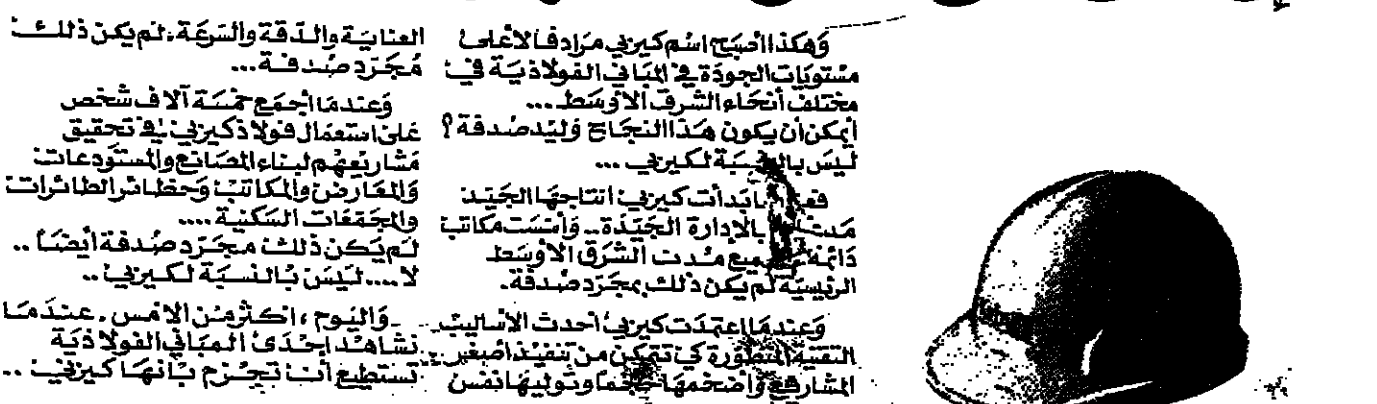 وَهكذا أصبَح اسْم كيربي مرَادفا لأعلىٰ
مسْتويَات الجودَة في المبَاني الفولاذيَة في
مختلف أنحَاء الشرق الاوسَط ...
أيمكن أن يكون هَذا النجَاح وَليْد صْدفة ؟
ليْسَ لكيربي ...
بَدأت كيربي انتَاجهَا الجَيّد
بالادارة الجَيّدَة .. وَأسّسَت مكاتب
دَائمَة مُدن الشَرق الأوسَط
الرئيسيّة لَم يكن ذلك بمجَرّد صُدفة .
وَعِندمَا اعتمَدَت كيربي أحدث الأسَاليبْ
التقنيّة المتطوّرَة كي تتمكن من تنفيْذ أصغر
المشاريع وَأضخمهَا حَجْمًا وتوليهَا نفسْ
العنايَة والدّقة والسُرعَة ، لم يكن ذلك
مُجَرّد صُدفَة ...
وَعندمَا أجمَع خمْسَة آلاف شخص
عَلىٰ استعمَال فولاذ كيربي في تحقيق
مَشاريعهْم لبناء المصَانع وَالمستَودعات
وَالمعَارض وَالمكاتبْ وَحظائر الطائرات
والمجَمّعَات السَكنيّة ....
لَم يَكن ذلك مجَرّد صُدفة أيضًا ..
لا .... ليْسَ بالنسبَة لكيربي ..
وَاليَوم ، اكثر من الامْس . عندَمَا
نشاهْد إحْدَىٰ المبَاني الفولاذيَة
نستطيع أن نجْزم بأنهَا كيربي ..